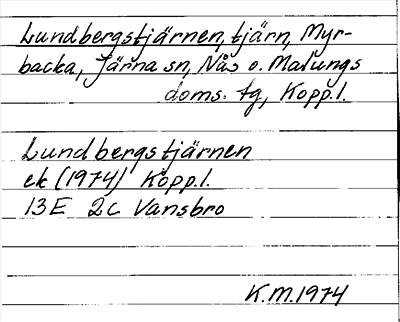 Lundbergstjärnen, tjärn, Myr-
backa, Järna sn, Nås o. Malungs
doms. tg, Kopp.l.
Lundbergstjärnen
ek (1974) Kopp.l.
13E 2c Vansbro
K.M.1974